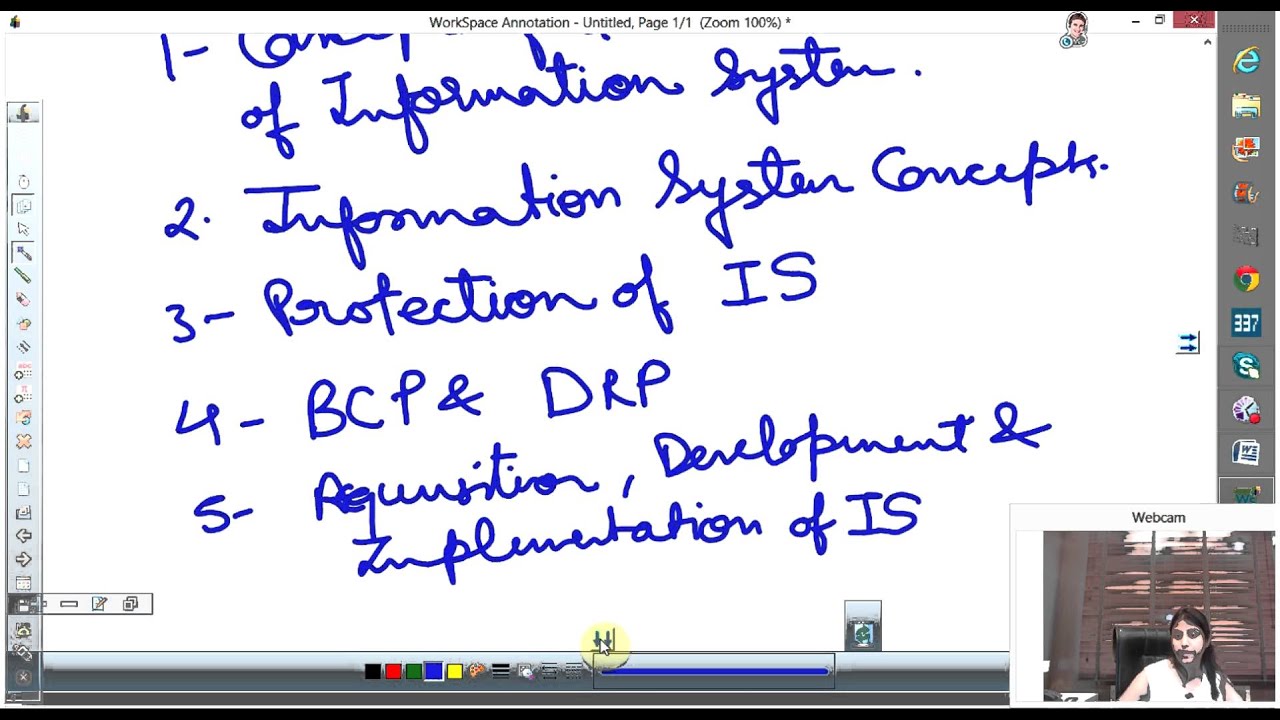 WorkSpace Annotation - Untitled, Page 1/1 (Zoom 100%) *
1-
of Information System.
2. Information System Concepts.
3- Protection of IS
4- BCP & DRP
5- , Development &
Implementation of IS
337
Webcam